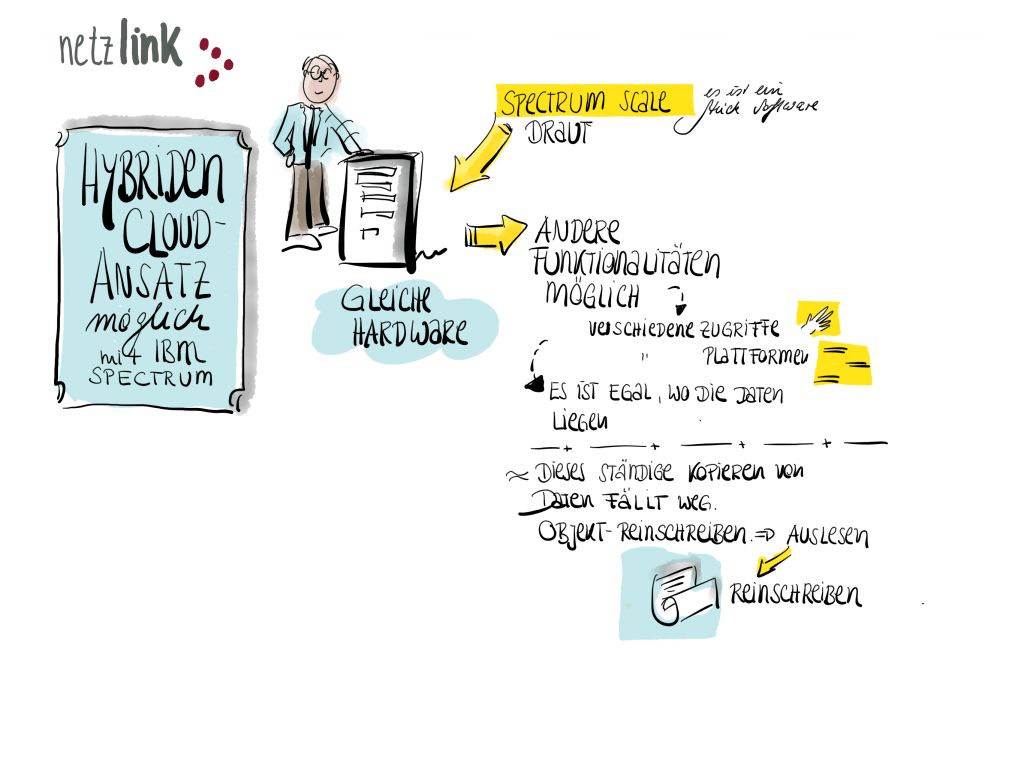 netzlink
HYBRIDEN
CLOUD-
ANSATZ
möglich
mit IBM
SPECTRUM
GLEICHE
HARDWARE
SPECTRUM SCALE
es ist ein
Stück Software
DRAUF
ANDERE
FUNKTIONALITÄTEN
MÖGLICH
VERSCHIEDENE ZUGRIFFE
" PLATTFORMEN
ES IST EGAL, WO DIE DATEN
LIEGEN
DIESES STÄNDIGE KOPIEREN VON
DATEN FÄLLT WEG.
OBJEKT-REINSCHREIBEN. => AUSLESEN
REINSCHREIBEN